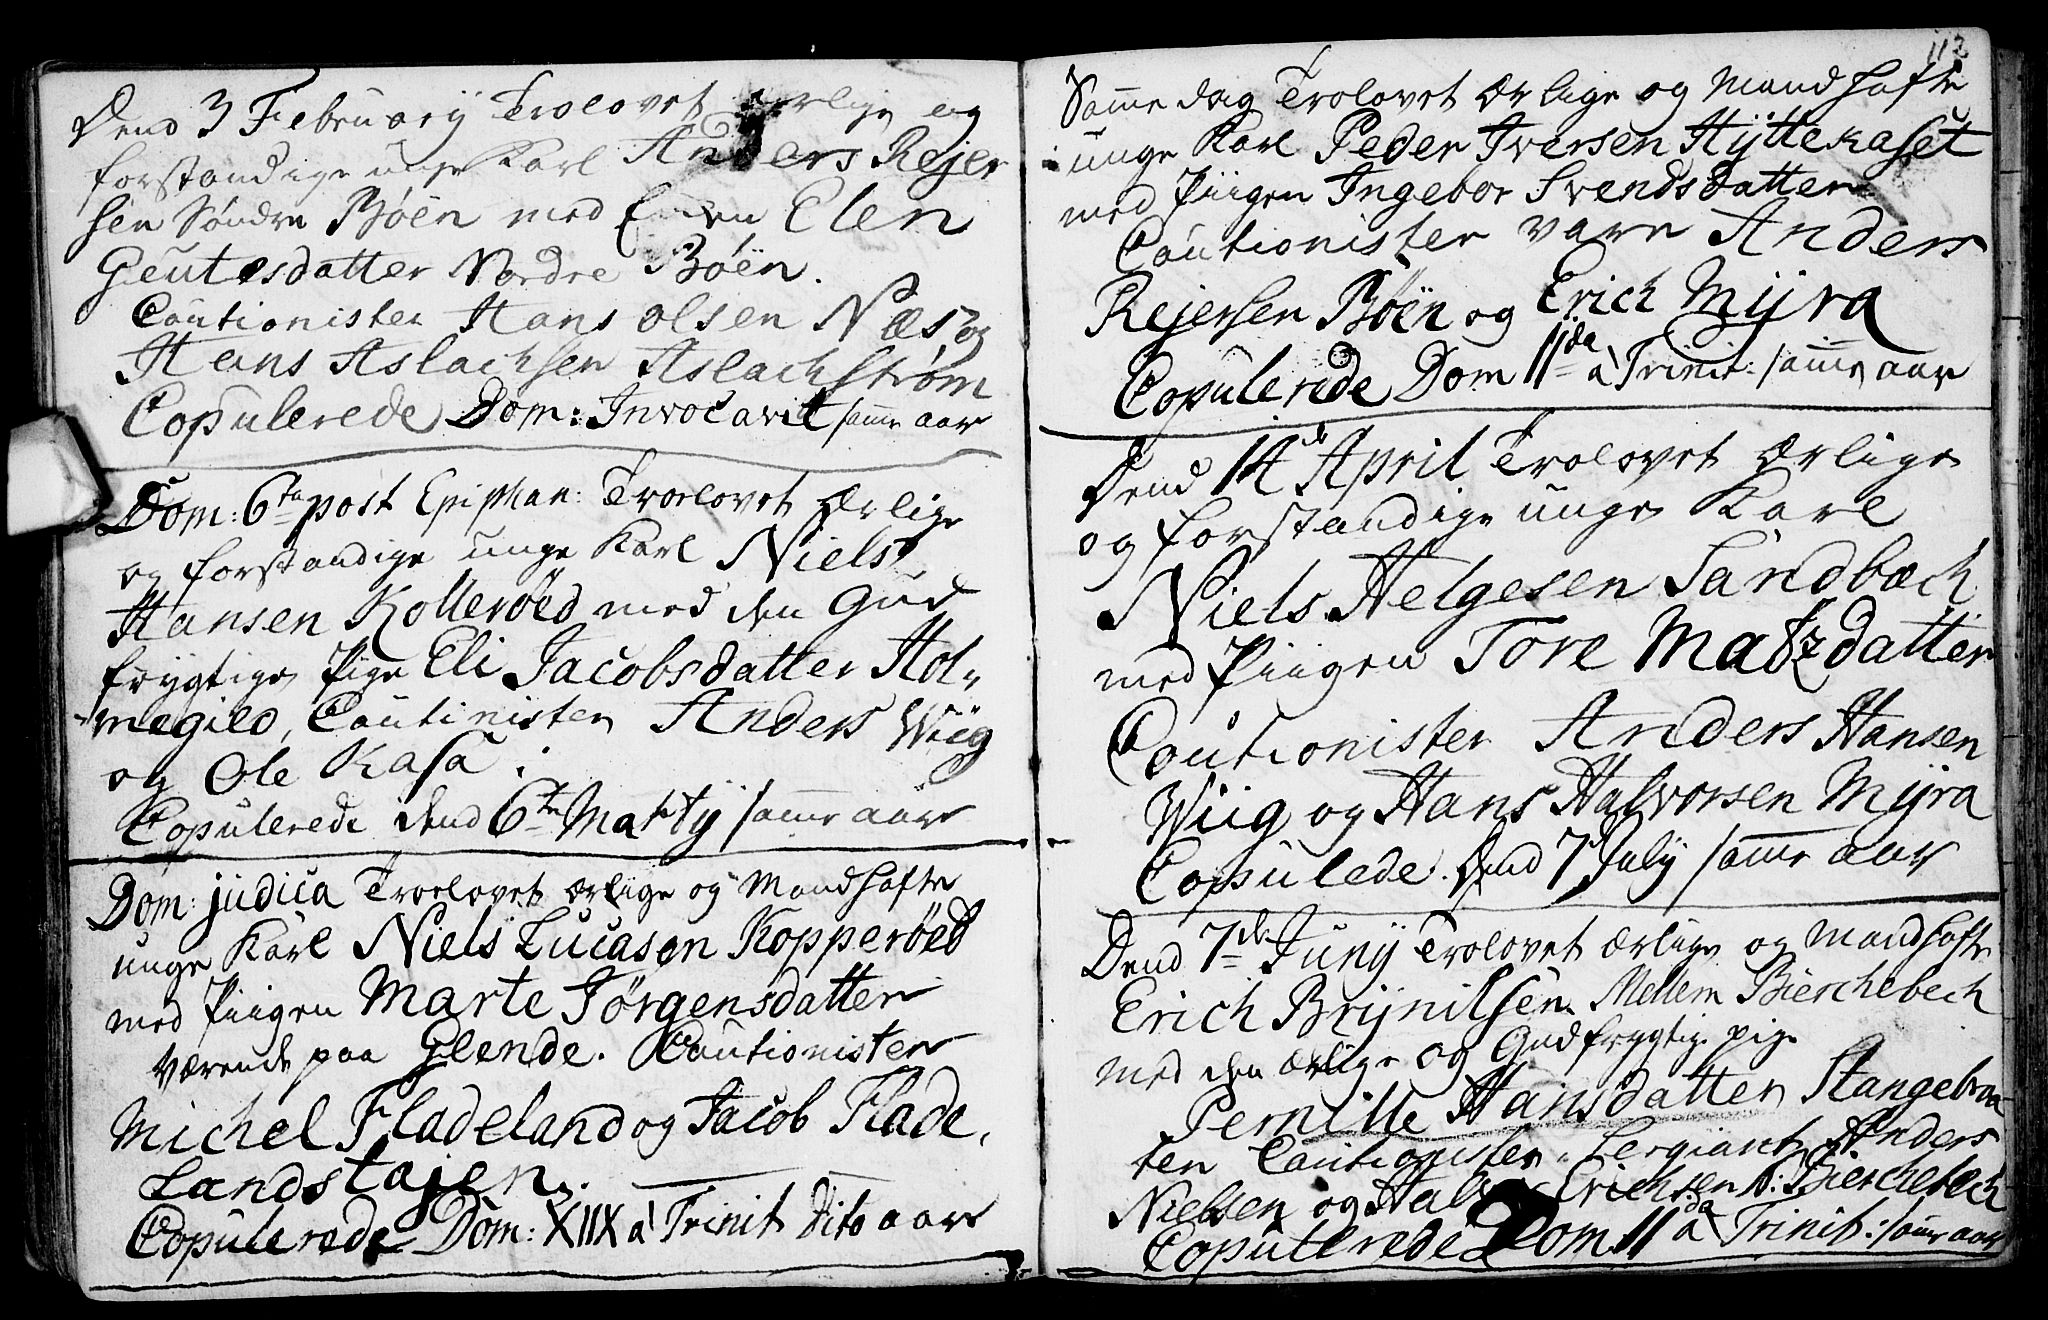 Dend 3 Februarij Trolovet ærlige og
forstandige unge Karl Anders Rejer
sen Søndre Bøen med Elen
Geutesdatter Nordre Bøen.
Cautionister Hans Olsen Næs og
Hans Aslachsen Aslachstrøm
Copulerede Dom: Invocavit samme aar
Dom: 6ta post Epiphan: Troelovet Ærlige
og forstandige unge Karl Niels
Hansen Kollerøed med den Gud
frygtige Pige Eli Jacobsdatter Hol„
megild, Cautinister Anders Wiig
og Ole Kasa.
Copulerede dend 6te Martij samme aar
Dom: judica Troelovet ærlige og Mandhafte
unge Karl Niels Lucasøn Kopperøed
med Piigen Marte Jørgensdatter
værende paa Glende. Cautionister
Michel Fladeland og Jacob Flade,
Landstajen.
Copulerede Dom: XIIX a Trinit dito aar
112
Samme dag Trolovet Ærlige og Mandhafte
unge Karl Peder Iversen Hyttekaset
med Piigen Ingebor Svendsdatter
Cautionister vare Anders
Rejersen Bøen og Erich Mijra
Copulerede Dom 11da a Trinit: samme aar
Dend 14de April Trolovet Ærlige
og forstandige unge Karl
Niels Helgesen Sandbæch
med Piigen Tore Matzdatter
Cautionister Anders Hansen
Wiig og Hans Halvorsen Mijra
Copulede. dend 7de July samme aar
Dend 7de Junij Trolovet ærlige og mandhafte
Erich Brijnilsen Mellem Bierchebech
med den ærlige og Gudfrygtige pige
Pernille Hansdatter Stangebraa
ten Cautionister Sergiant Anders
Nielsen og Halvor Erichsen N: Bierchebech
Copulerede Dom 11da a Trinit: samme aar